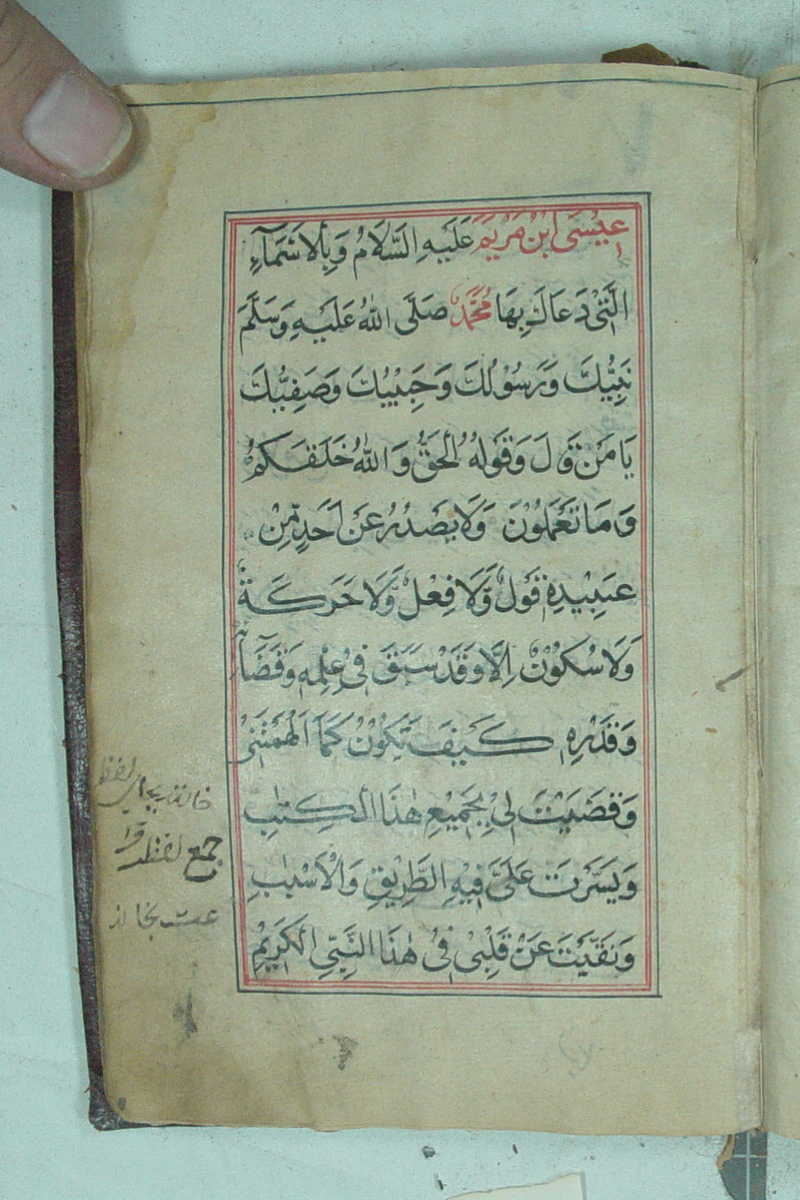 عِيْسَى ابْنُ مَرْيَمَ عَلَيْهِ السَّلَامُ وَبِالْاَسْمَآءِ
الَّتِيْ دَعَاكَ بِهَا مُحَمَّدٌ صَلَّى اللّٰهُ عَلَيْهِ وَسَلَّمَ
نَبِيُّكَ وَرَسُوْلُكَ وَحَبِيْبُكَ وَصَفِيُّكَ
يَا مَنْ قَالَ وَقَوْلُهُ الْحَقُّ وَاللّٰهُ خَلَقَكُمْ
وَمَا تَعْمَلُوْنَ وَلَا يَصْدُرُ عَنْ اَحَدٍ مِّنْ
عَبِيْدِهٖ قَوْلٌ وَّلَا فِعْلٌ وَّلَا حَرَكَةٌ
وَلَا سُكُوْنٌ اِلَّا وَقَدْ سَبَقَ فِيْ عِلْمِهٖ وَقَضَآئِهٖ
وَقَدَرِهٖ كَيْفَ تَكُوْنُ كَمَا اَلْهَمْتَنِيْ
وَقَضَيْتَ لِيْ بِجَمِيْعِ هٰذَا الْكِتٰبِ
وَيَسَّرْتَ عَلَيَّ فِيْهِ الطَّرِيْقَ وَالْاَسْبٰبَ
وَنَفَيْتَ عَنْ قَلْبِيْ فِيْ هٰذَا النَّبِيِّ الْكَرِيْمِ
جمع لفظ